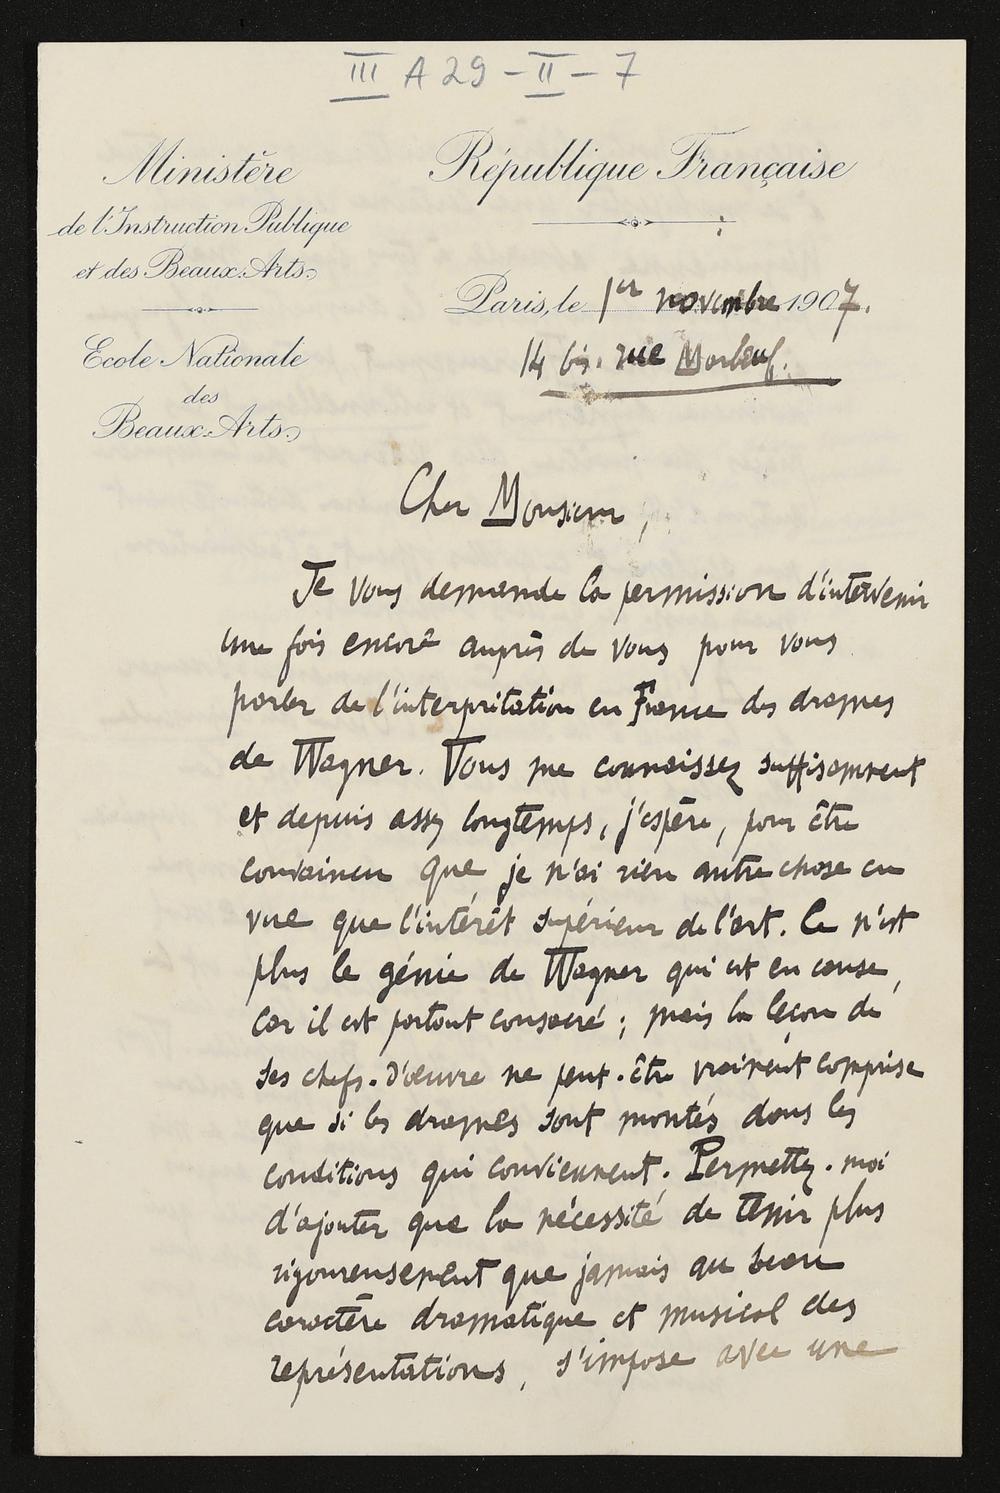 III A 29 - II - 7
Ministère
de l'Instruction Publique
et des Beaux-Arts.
République Française
Paris, le 1er novembre 1907.
14 bis. rue Marbeuf.
Ecole Nationale
des
Beaux-Arts.
Cher Monsieur,
Je vous demande la permission d'intervenir
une fois encore auprès de vous pour vous
parler de l'interprétation en France des drames
de Wagner. Vous me connaissez suffisamment
et depuis assez longtemps, j'espère, pour être
convaincu que je n'ai rien autre chose en
vue que l'intérêt supérieur de l'art. Ce n'est
plus le génie de Wagner qui est en cause,
car il est partout consacré ; mais la leçon de
ses chefs-d'œuvre ne peut-être vraiment comprise
que si les drames sont montés dans les
conditions qui conviennent. Permettez-moi
d'ajouter que la nécessité de tenir plus
rigoureusement que jamais au beau
caractère dramatique et musical des
représentations, s'impose avec une